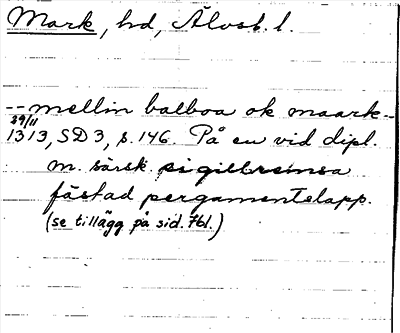 Mark, hd, Älvsb. l.
-- mellin balboa ok maark --
29/11
1313, SD 3, s. 146. På en vid dipl.
m. särsk. sigillremsa
fästad pergamentslapp.
(se tillägg på sid. 761.)